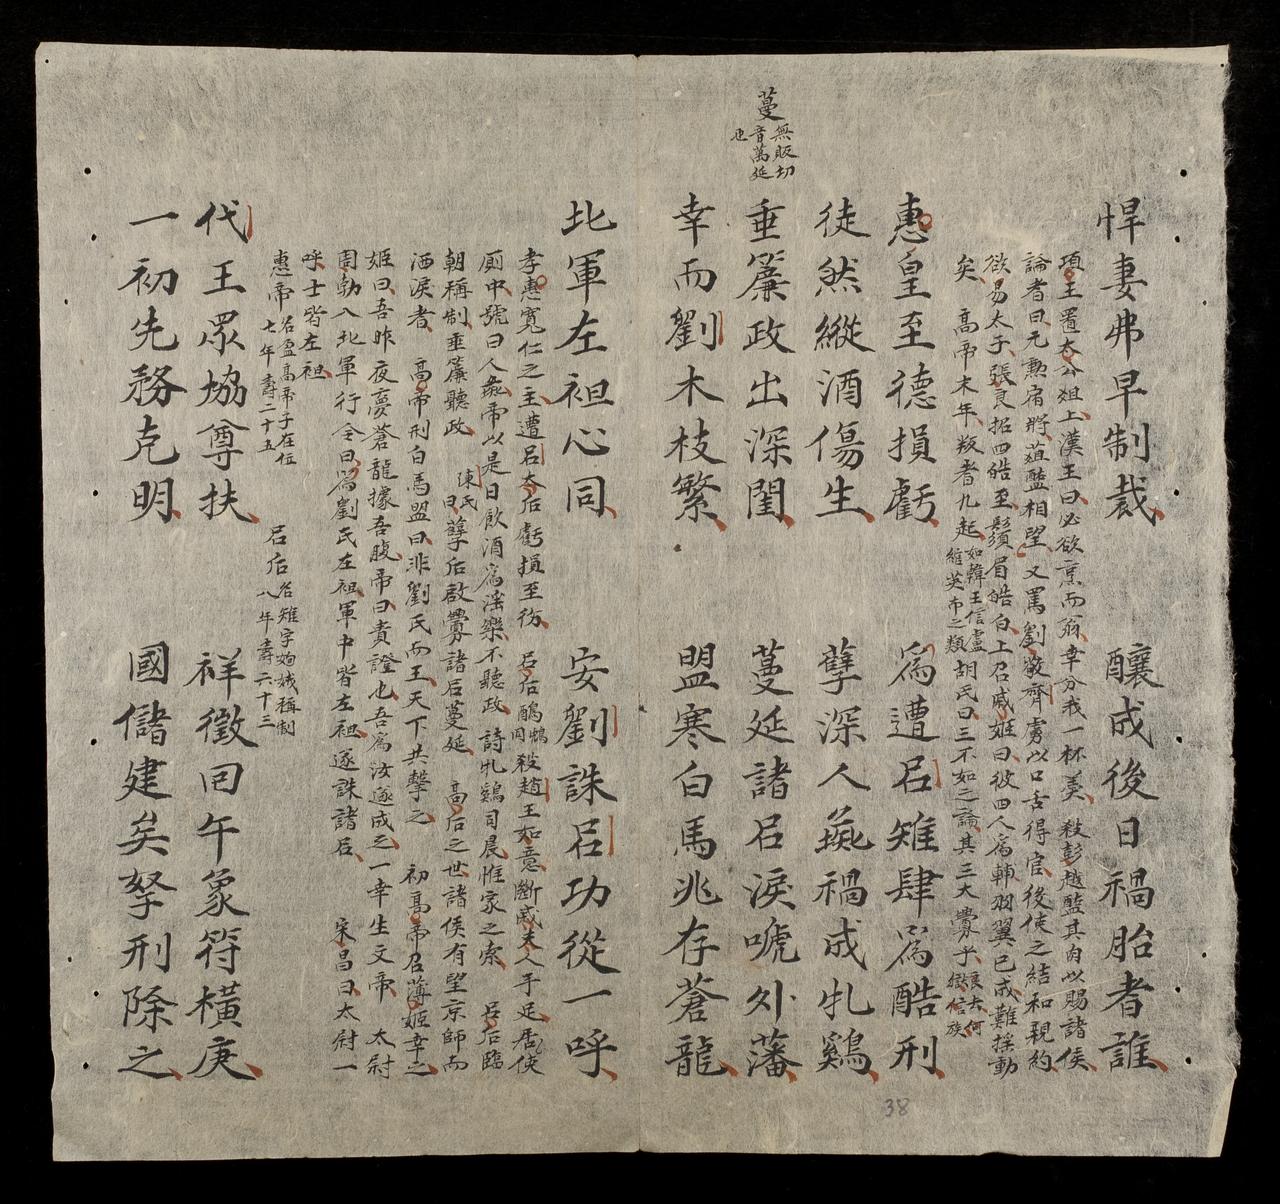 悍妻弗早制裁　釀成後日禍胎者誰
項王置太公俎上漢王曰必欲烹而翁幸分我一杯羹　殺彭越醢其肉以賜諸侯
論者曰元勲宿將葅醢相望又罵劉敬齊虜以口舌得官後使之結和親約
欲易太子張良招四皓至鬚眉皓白上召戚姬曰彼四人爲輔羽翼已成難搖動
矣　高帝末年叛者九起如韓王信盧綰英布之類胡氏曰三不如之論其三大釁乎
惠皇至德損虧　爲遭呂雉肆爲酷刑
徒然縱酒傷生　孽深人彘禍成牝鷄
蔓無販切音萬延也
垂簾政出深閨　蔓延諸呂淚唬外藩
幸而劉木枝繁　盟寒白馬兆存蒼龍
北軍左袒心同　安劉誅呂功從一呼
孝惠寬仁之主遭呂太后虧損至彷　呂后酖鴆同殺趙王如意斷戚夫人手足居使
厠中號曰人彘帝以是日飲酒爲淫樂不聽政　詩牝鷄司晨惟家之索　呂后臨
朝稱制垂簾聽政　陳氏曰孽后啟釁諸呂蔓延　高后之世諸侯有望京師而
洒淚者　高帝刑白馬盟曰非劉氏而王天下共擊之　初高帝召薄姬幸之
姬曰吾昨夜夢蒼龍據吾腹帝曰貴證也吾爲汝遂成之一幸生文帝　太尉
周勃入北軍行令曰爲劉氏左袒軍中皆左袒遂誅諸呂　宋昌曰太尉一
呼士皆左袒
惠帝名盈高帝子在位七年壽二十五　呂后名雉字姁娥稱制八年壽六十三
代王眾協尊扶　祥徵囘午象符橫庚
一初先務克明　國儲建矣孥刑除之
38